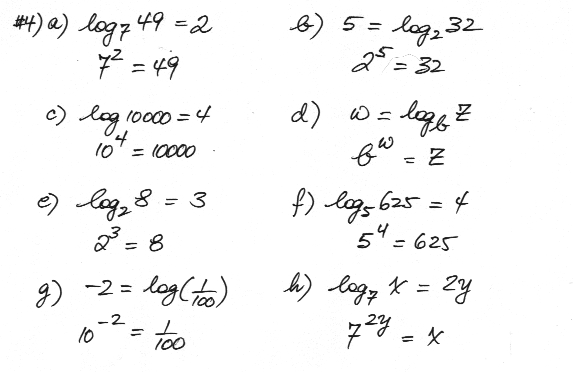 #4) a) log₇ 49 = 2
7² = 49
b) 5 = log₂ 32
2⁵ = 32
c) log 10000 = 4
10⁴ = 10000
d) w = log_b Z
b^w = Z
e) log₂ 8 = 3
2³ = 8
f) log₅ 625 = 4
5⁴ = 625
g) -2 = log(1/100)
10⁻² = 1/100
h) log₇ x = 2y
7^2y = x